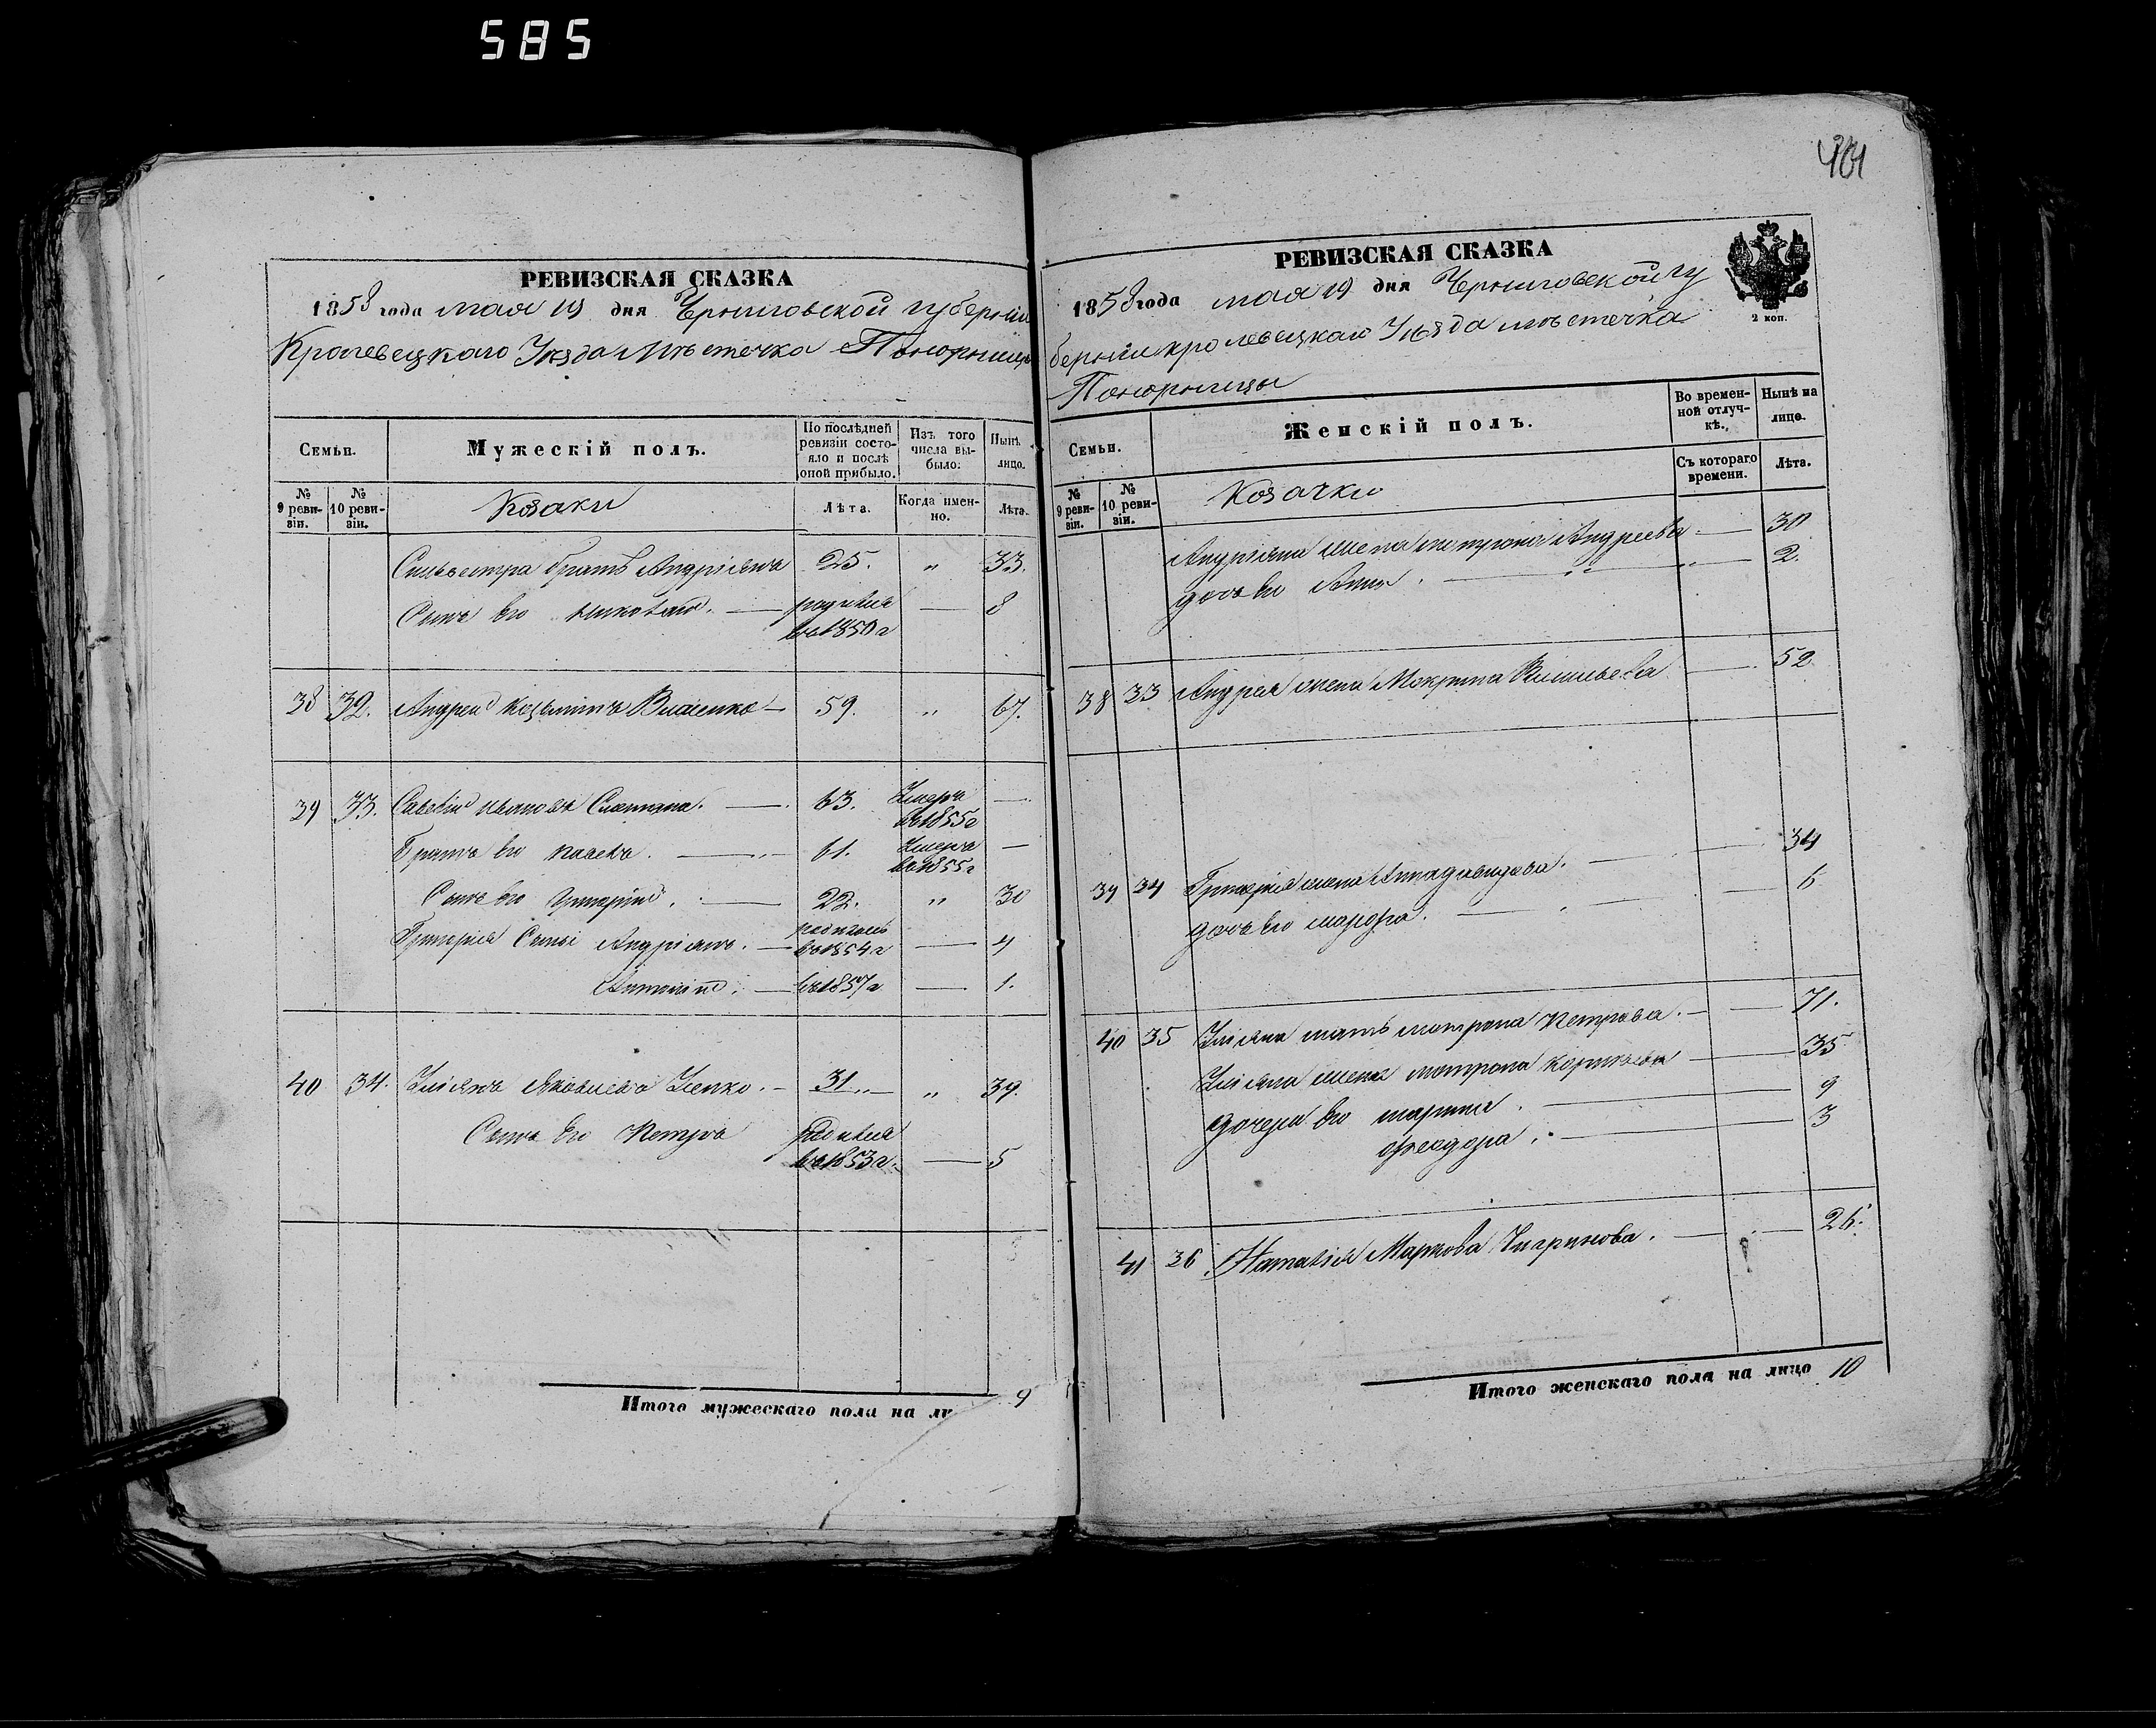 585
РЕВИЗСКАЯ СКАЗКА
1858 года мая 19 дня Черниговской губерніи
Кролевецкаго Уѣзда мѣстечка Понорницы
Семьи.
Мужескій полъ.
По послѣдней ревизіи состояло и послѣ оной прибыло.
Изъ того числа выбыло:
Нынѣ лицо.
№ 9 ревизіи.
№ 10 ревизіи.
Козаки
Лѣта.
Когда именно.
Лѣта.
Сильвестра братъ Андріянъ 25. " 33.
Сынъ его Николай. родился въ 1850 г 8
38 32. Андрей 59. " 67.
39 33. Савелій Ивановъ 63. Умеръ въ 1855 г
Братъ его Павелъ. 61. Умеръ въ 1855 г
Сынъ его Григорій. 22. " 30
Григорія Сыны Андріянъ. въ 1854 г 4
въ 1857 г 1.
40 34. Уліянъ Яковлевъ 31 " 39.
Сынъ его Петръ родился въ 1853 г. 5
Итого мужескаго пола на ли 9
401
РЕВИЗСКАЯ СКАЗКА
1858 года мая 19 дня Черниговской гу
берніи кролевецкаго Уѣзда мѣстечка
Понорницы
2 коп.
Семьи.
Женскій полъ.
Во временной отлучкѣ.
Нынѣ на лицо.
№ 9 ревизіи.
№ 10 ревизіи.
Козачки
Съ котораго времени.
Лѣта.
Андріяна жена Андреева 30
дочь его Анна. 2.
38 33 Андрея жена Мокрина Васильева 52
39 34 Григорія жена Анна давидова. 34
дочь его 6
40 35 Уліяна мать матрона Петрова. 71.
Уліяна жена матрона 35
дочери его марина. 9
феодора. 3
41 36 Наталія Маркова Чигринова. 26.
Итого женскаго пола на лицо 10